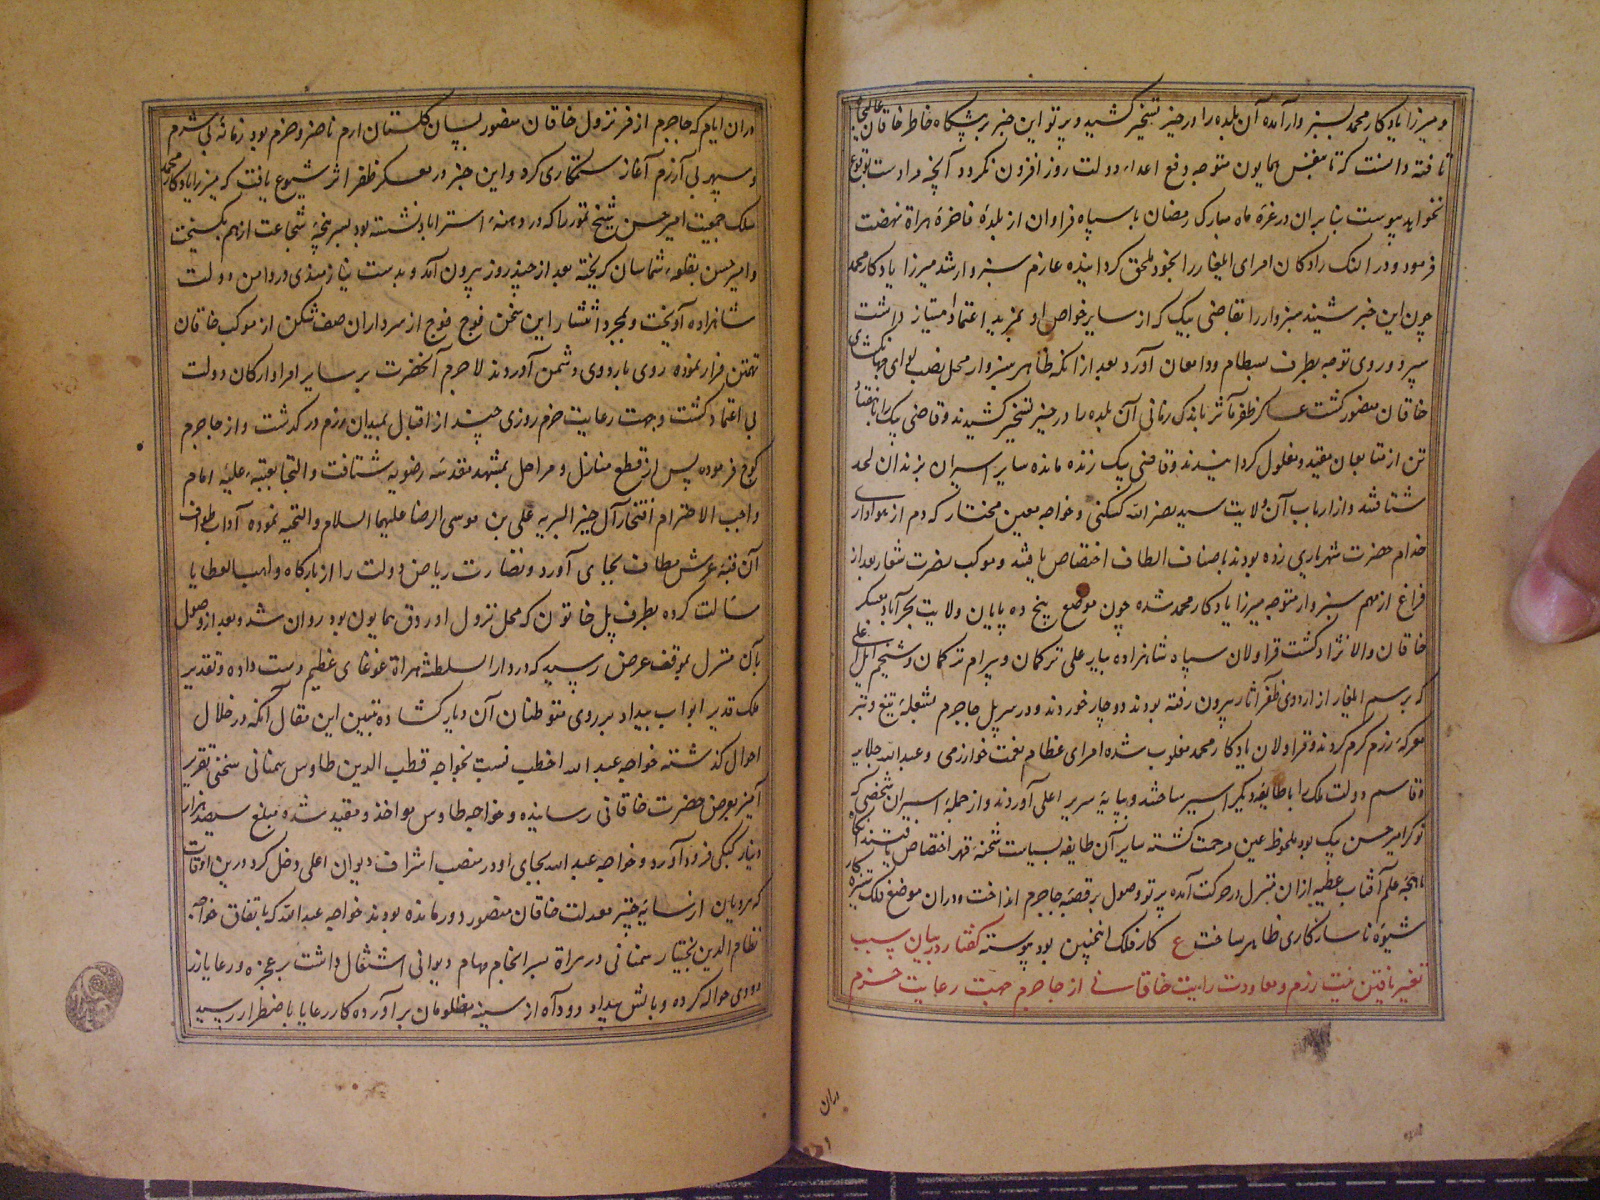 و میرزا یادکار محمد بسبزوار آمده آن بلده را در حیز تسخیر کشید و پرتو این خبر بر پیشکاه خاطر خاقان عالیجاه
تافته دانست که تا بنفس همایون متوجه دفع اعداء دولت روز افزون نکردد آنچه مرادست بوقوع
نخواهد پیوست بنابران در غرۀ ماه مبارک رمضان با سپاه فراوان از بلدۀ فاخرۀ هراة نهضت
فرمود و در النک رادکان امرای ایلغار را بخود ملحق کردانیده عازم سبزوار شد میرزا یادکار محمد
چون این خبر شنید سبزوار را بقاضی بیک که از سایر خواص او بمزید اعتماد امتیاز داشت
سپرد و روی توجه بطرف بسطام و دامغان آورد بعد از انکه ظاهر سبزوار محل نصب لوای جهانکشای
خاقان منصور کشت عساکر ظفر مآثر باندک زمانی آن بلده را در حیز تسخیر کشیدند و قاضی بیک را با هفتاد
تن از متابعان مقید و مغلول کردانیدند و قاضی بیک زنده مانده سایر اسیران بزندان لحد
شتافتند و از ارباب آن ولایت سید نصر الله کسکنی و خواجه معین مختار که دم از هواداری
خدام حضرت شهریاری زده بودند باصناف الطاف اختصاص یافتند و موکب نصرت شعار بعد از
فراغ از مهم سبزوار متوجه میرزا یادکار محمد شده چون موضع پنج ده پایان ولایت بحرآباد معسکر
خاقان والا نژاد کشت قراولان سپاه شاهزاده بایر علی ترکمان و پیرام ترکمان و شیخم ایل علی
که برسم ایلغار از اردوی ظفر آثار بیرون رفته بودند دوچار خوردند و در سر پل جاجرم بشعلۀ تیغ و تبر
معرکۀ رزم کرم کردند و قراولان یادکار محمد مغلوب شده امرای عظام نعمت خوارزمی و عبد الله جلایر
و قاسم دولت ملک را با طایفۀ دیکر اسیر ساختند و بپایۀ سریر اعلی آوردند و از جملۀ اسیران شخصی که
نوکر امیر حسن بیک بود ملحوظ عین مرحمت کشته سایر آن طایفه بسیاست شحنۀ قهر اختصاص یافتند آنکاه
ماهچۀ علم آفتاب عطیه از ان منزل در حرکت آمده پرتو وصول بر قصبۀ جاجرم انداخت و در ان موضع فلک ستیزه کار
شیوۀ ناسازکاری ظاهر ساخت ع کار فلک اینچنین بود پیوسته کفتار در بیان سبب
تغییر یافتن نیت رزم و معاودت رایت خاقانی از جاجرم جهت رعایت حزم
دران
در ان ایام که جاجرم از فر نزول خاقان منصور بسان کلستان ارم ناضر و خرم بود زمانۀ بی شرم
و سپهر بی آزرم آغاز ستمکاری کرد و این خبر در معسکر ظفر اثر شیوع یافت که میرزا یادکار محمد
سلک جمعیت امیر حسن شیخ تمور را که در دهنۀ استراباد نشسته بود بسرپنجۀ شجاعت از هم بکسیخت
و امیر حسن بقلعۀ شماسان کریخته بعد از چند روز بیرون آمد و بدست نیازمندی در دامن دولت
شاهزاده آویخت و بمجرد انتشار این سخن فوج فوج از سرداران صف شکن از موکب خاقان
تهمتن فرار نموده روی باردوی دشمن آوردند لاجرم آنحضرت بر سایر امرا و ارکان دولت
بی اعتماد کشت و جهت رعایت حزم روزی چند از اقبال بمیدان رزم در کذشت و از جاجرم
کوچ فرموده پس از قطع منازل و مراحل بمشهد مقدسه رضویه شتافت و التجا بعتبۀ علیۀ امام
واجب الاحترام افتخار آل خیر البریه علی بن موسی الرضا علیهما السلام و التحیه نموده آداب طواف
آن قبۀ عرش مطاف بجای آورد و نضارت ریاض دولت را از بارکاه واهب العطایا
مسالت کرده بطرف پل خاتون که محل نزول اوردق همایون بود روان شد و بعد از وصول
بان منزل بموقف عرض رسید که در دار السلطنۀ هراة غوغای عظیم دست داده و تقدیر
ملک قدیر ابواب بیداد بر روی متوطنان آن دیار کشاده تبیین این مقال آنکه در خلال
احوال کذشته خواجه عبد الله اخطب نسبت بخواجه قطب الدین طاوس سمنانی سخنی تقریر
آمیز بعرض حضرت خاقانی رسانیده و خواجه طاوس مواخذ و مقید شده مبلغ سیصد هزار
دینار کپکی فرود آورد و خواجه عبد الله بجای او در منصب اشراف دیوان اعلی دخل کرد و درین اوقات
که هرویان از سایۀ چتر معدلت خاقان منصور دور مانده بودند خواجه عبد الله که باتفاق خواجه
نظام الدین بختیار سمنانی در هراة بسرانجام مهام دیوانی اشتغال داشت بر عجزه و رعایا زر
دودی حواله کرده و باتش بیداد دود آه از سینه مظلومان برآورده کار رعایا باضطرار رسید